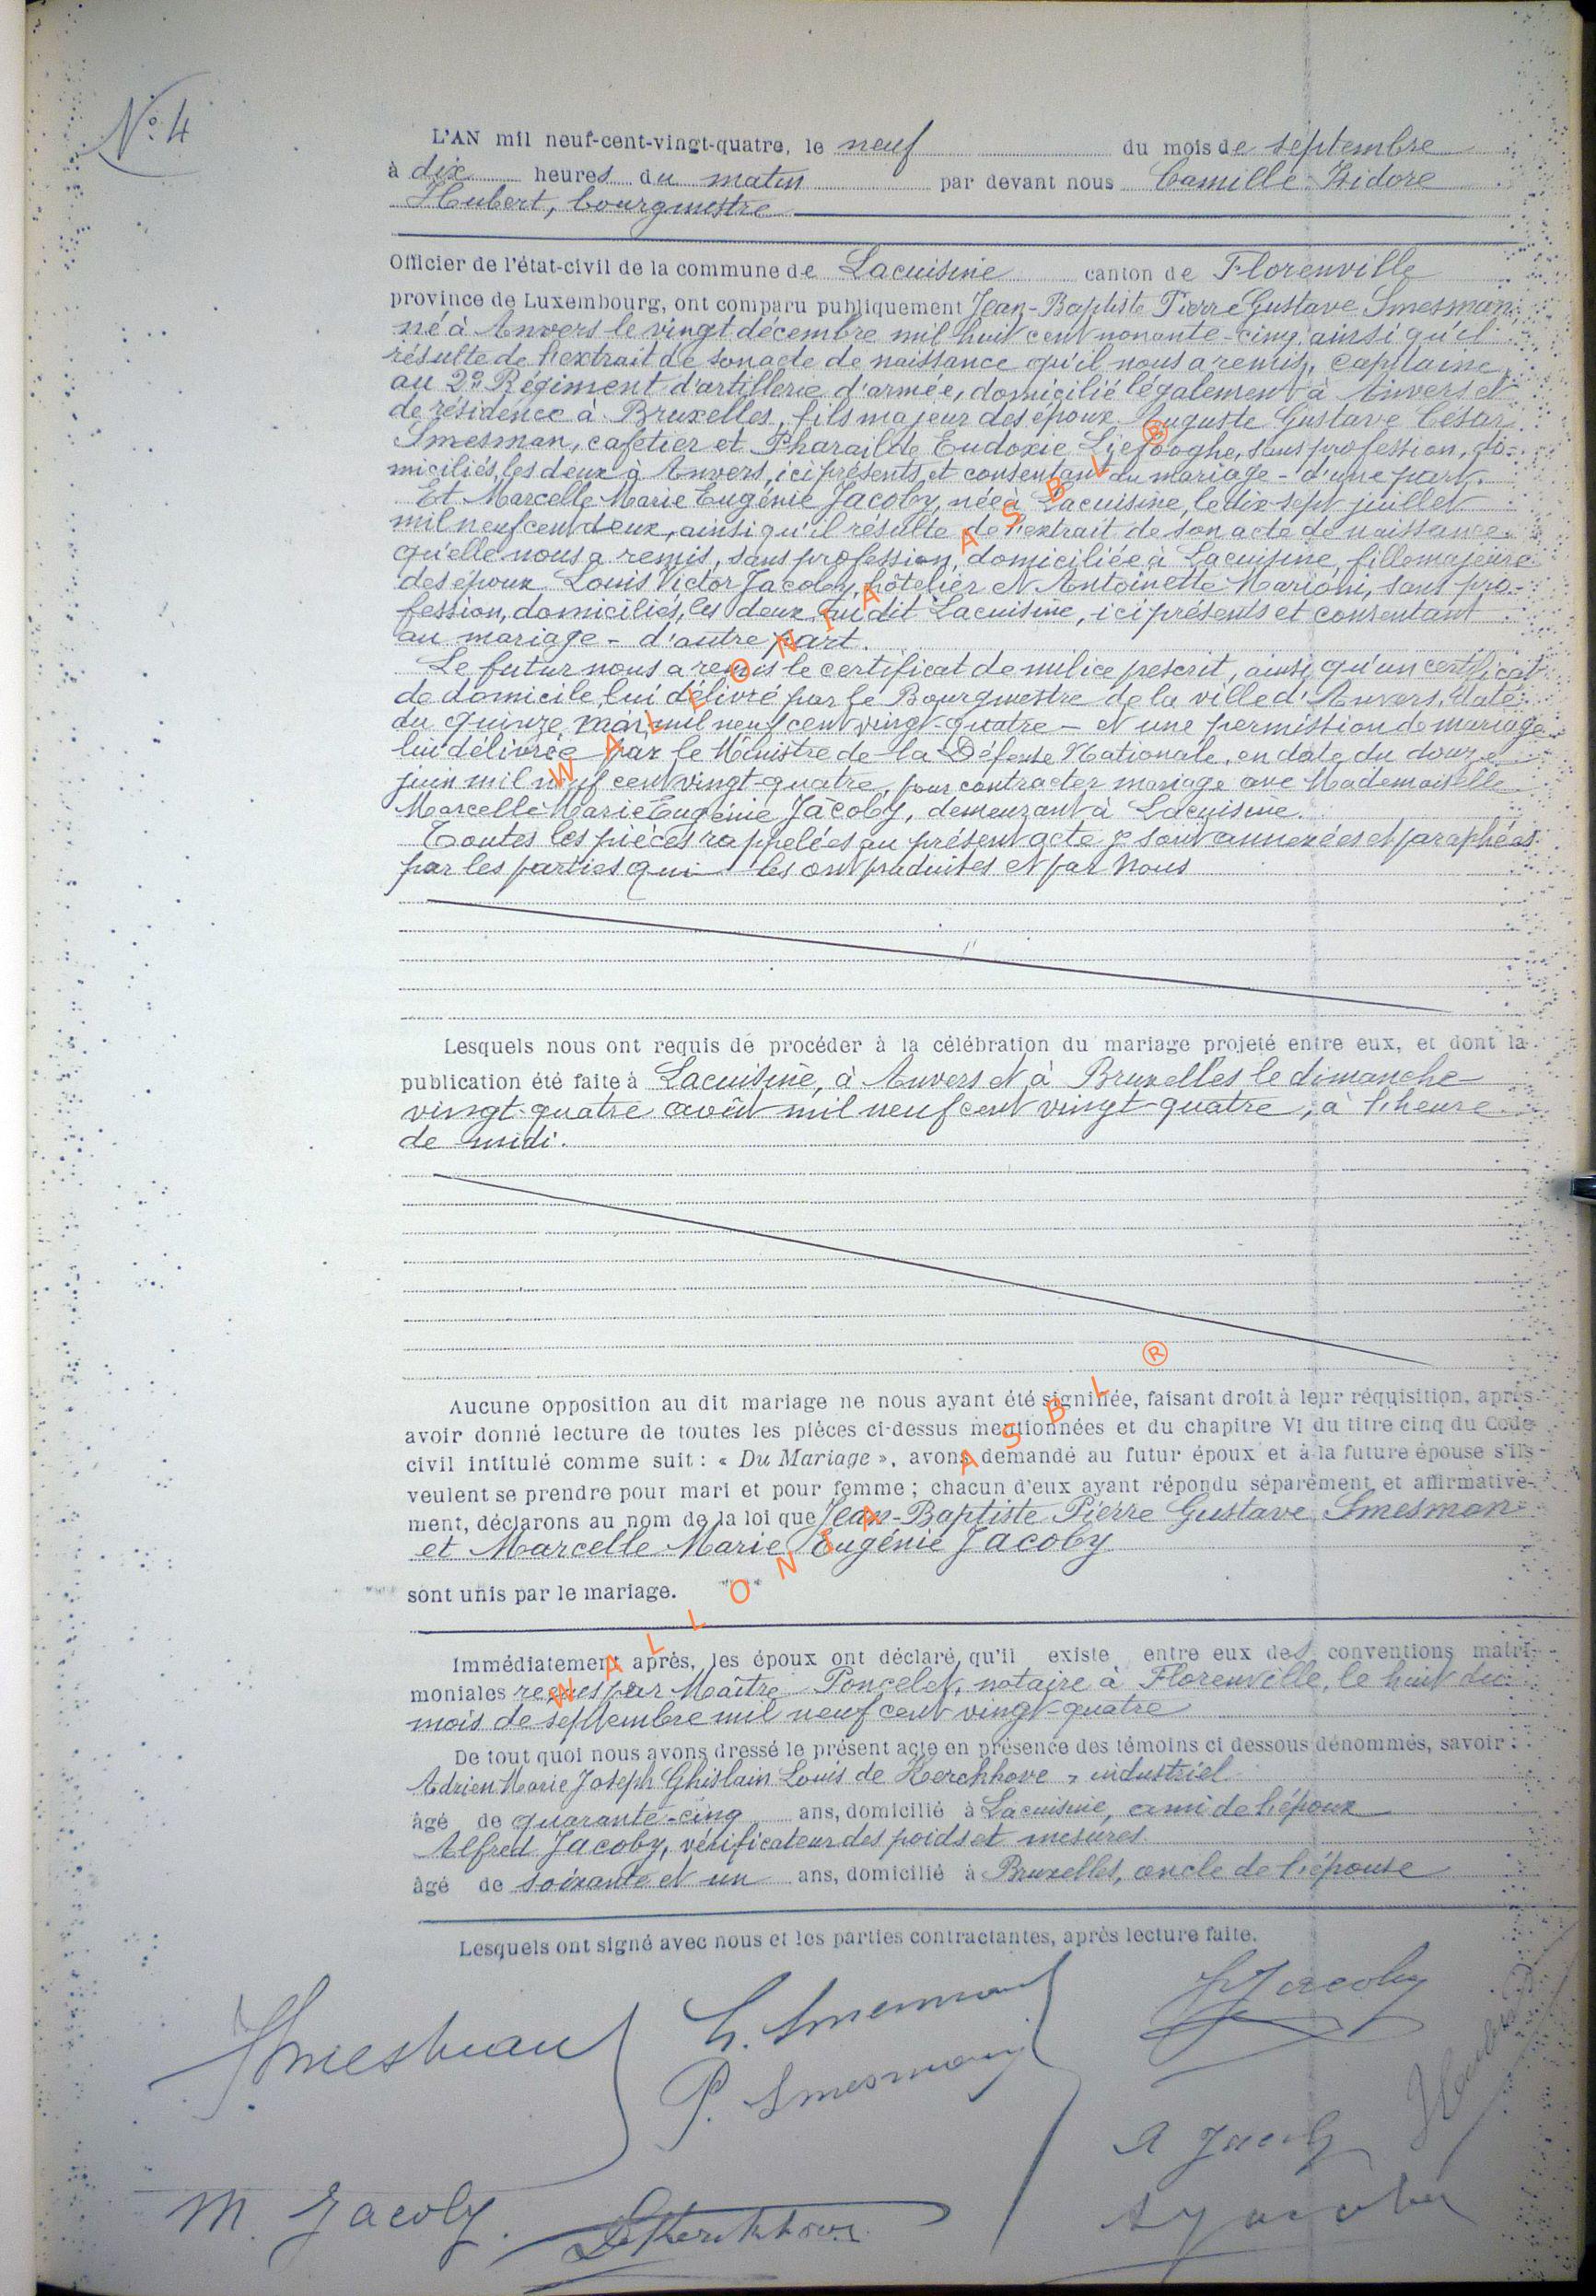 N° 4
L'AN mil neuf-cent-vingt-quatre, le neuf du mois de septembre
à dix heures du matin par devant nous Camille Isidore
Hubert, bourgmestre
Officier de l'état-civil de la commune de Lacuisine canton de Florenville
province de Luxembourg, ont comparu publiquement Jean-Baptiste Pierre Gustave Smesman
né à Anvers le vingt décembre mil huit cent nonante-cinq ainsi qu'il
résulte de l'extrait de son acte de naissance qu'il nous a remis, capitaine
au 2e Régiment d'artillerie d'armée, domicilié légalement à Anvers et
de résidence à Bruxelles, fils majeur des époux Auguste Gustave César
Smesman, cafetier et Pharaïlde Eudoxie, sans profession, do-
miciliés, les deux à Anvers, ici présents et consentant au mariage - d'une part.
Et Marcelle Marie Eugénie Jacoby, née à Lacuisine, le dix-sept juillet
mil neuf cent deux, ainsi qu'il résulte de l'extrait de son acte de naissance
qu'elle nous a remis, sans profession, domiciliée à Lacuisine, fille majeure
des époux Louis Victor Jacoby, hôtelier et Antoinette Marioni, sans pro-
fession, domiciliés, les deux au dit Lacuisine, ici présents et consentant
au mariage - d'autre part.
Le futur nous a remis le certificat de milice prescrit, ainsi qu'un certificat
de domicile lui délivré par le Bourgmestre de la ville d'Anvers, daté
du quinze mai mil neuf cent vingt-quatre - et une permission de mariage
lui délivrée par le Ministre de la Défense Nationale, en date du douze
juin mil neuf cent vingt-quatre, pour contracter mariage avec Mademoiselle
Marcelle Marie Eugénie Jacoby, demeurant à Lacuisine.
Toutes les pièces rappelées au présent acte y sont annexées et paraphées
par les parties qui les ont produites et par nous
Lesquels nous ont requis de procéder à la célébration du mariage projeté entre eux, et dont la
publication été faite à Lacuisine, à Anvers et à Bruxelles le dimanche
vingt-quatre août mil neuf cent vingt-quatre, à l'heure
de midi.
Aucune opposition au dit mariage ne nous ayant été signifiée, faisant droit à leur réquisition, après
avoir donné lecture de toutes les pièces ci-dessus mentionnées et du chapitre VI du titre cinq du Code
civil intitulé comme suit : « Du Mariage », avons demandé au futur époux et à la future épouse s'ils
veulent se prendre pour mari et pour femme ; chacun d'eux ayant répondu séparément et affirmative-
ment, déclarons au nom de la loi que Jean-Baptiste Pierre Gustave Smesman
et Marcelle Marie Eugénie Jacoby
sont unis par le mariage.
Immédiatement après, les époux ont déclaré qu'il existe entre eux des conventions matri-
moniales reçues par Maître Poncelet, notaire à Florenville, le huit du
mois de septembre mil neuf cent vingt-quatre
De tout quoi nous avons dressé le présent acte en présence des témoins ci dessous dénommés, savoir :
Adrien Marie Joseph Ghislain Louis de Kerchhove, industriel
âgé de quarante-cinq ans, domicilié à Lacuisine, ami de l'époux
Alfred Jacoby, vérificateur des poids et mesures
âgé de soixante et un ans, domicilié à Bruxelles, oncle de l'épouse
Lesquels ont signé avec nous et les parties contractantes, après lecture faite.
Smesman
G. Smesman
Jacoby
P. Smesman
Hubert
A Jacoby
M. Jacoby.
DeKerchhove
A Jacoby
WALLONIA ASBL ®
WALLONIA ASBL ®